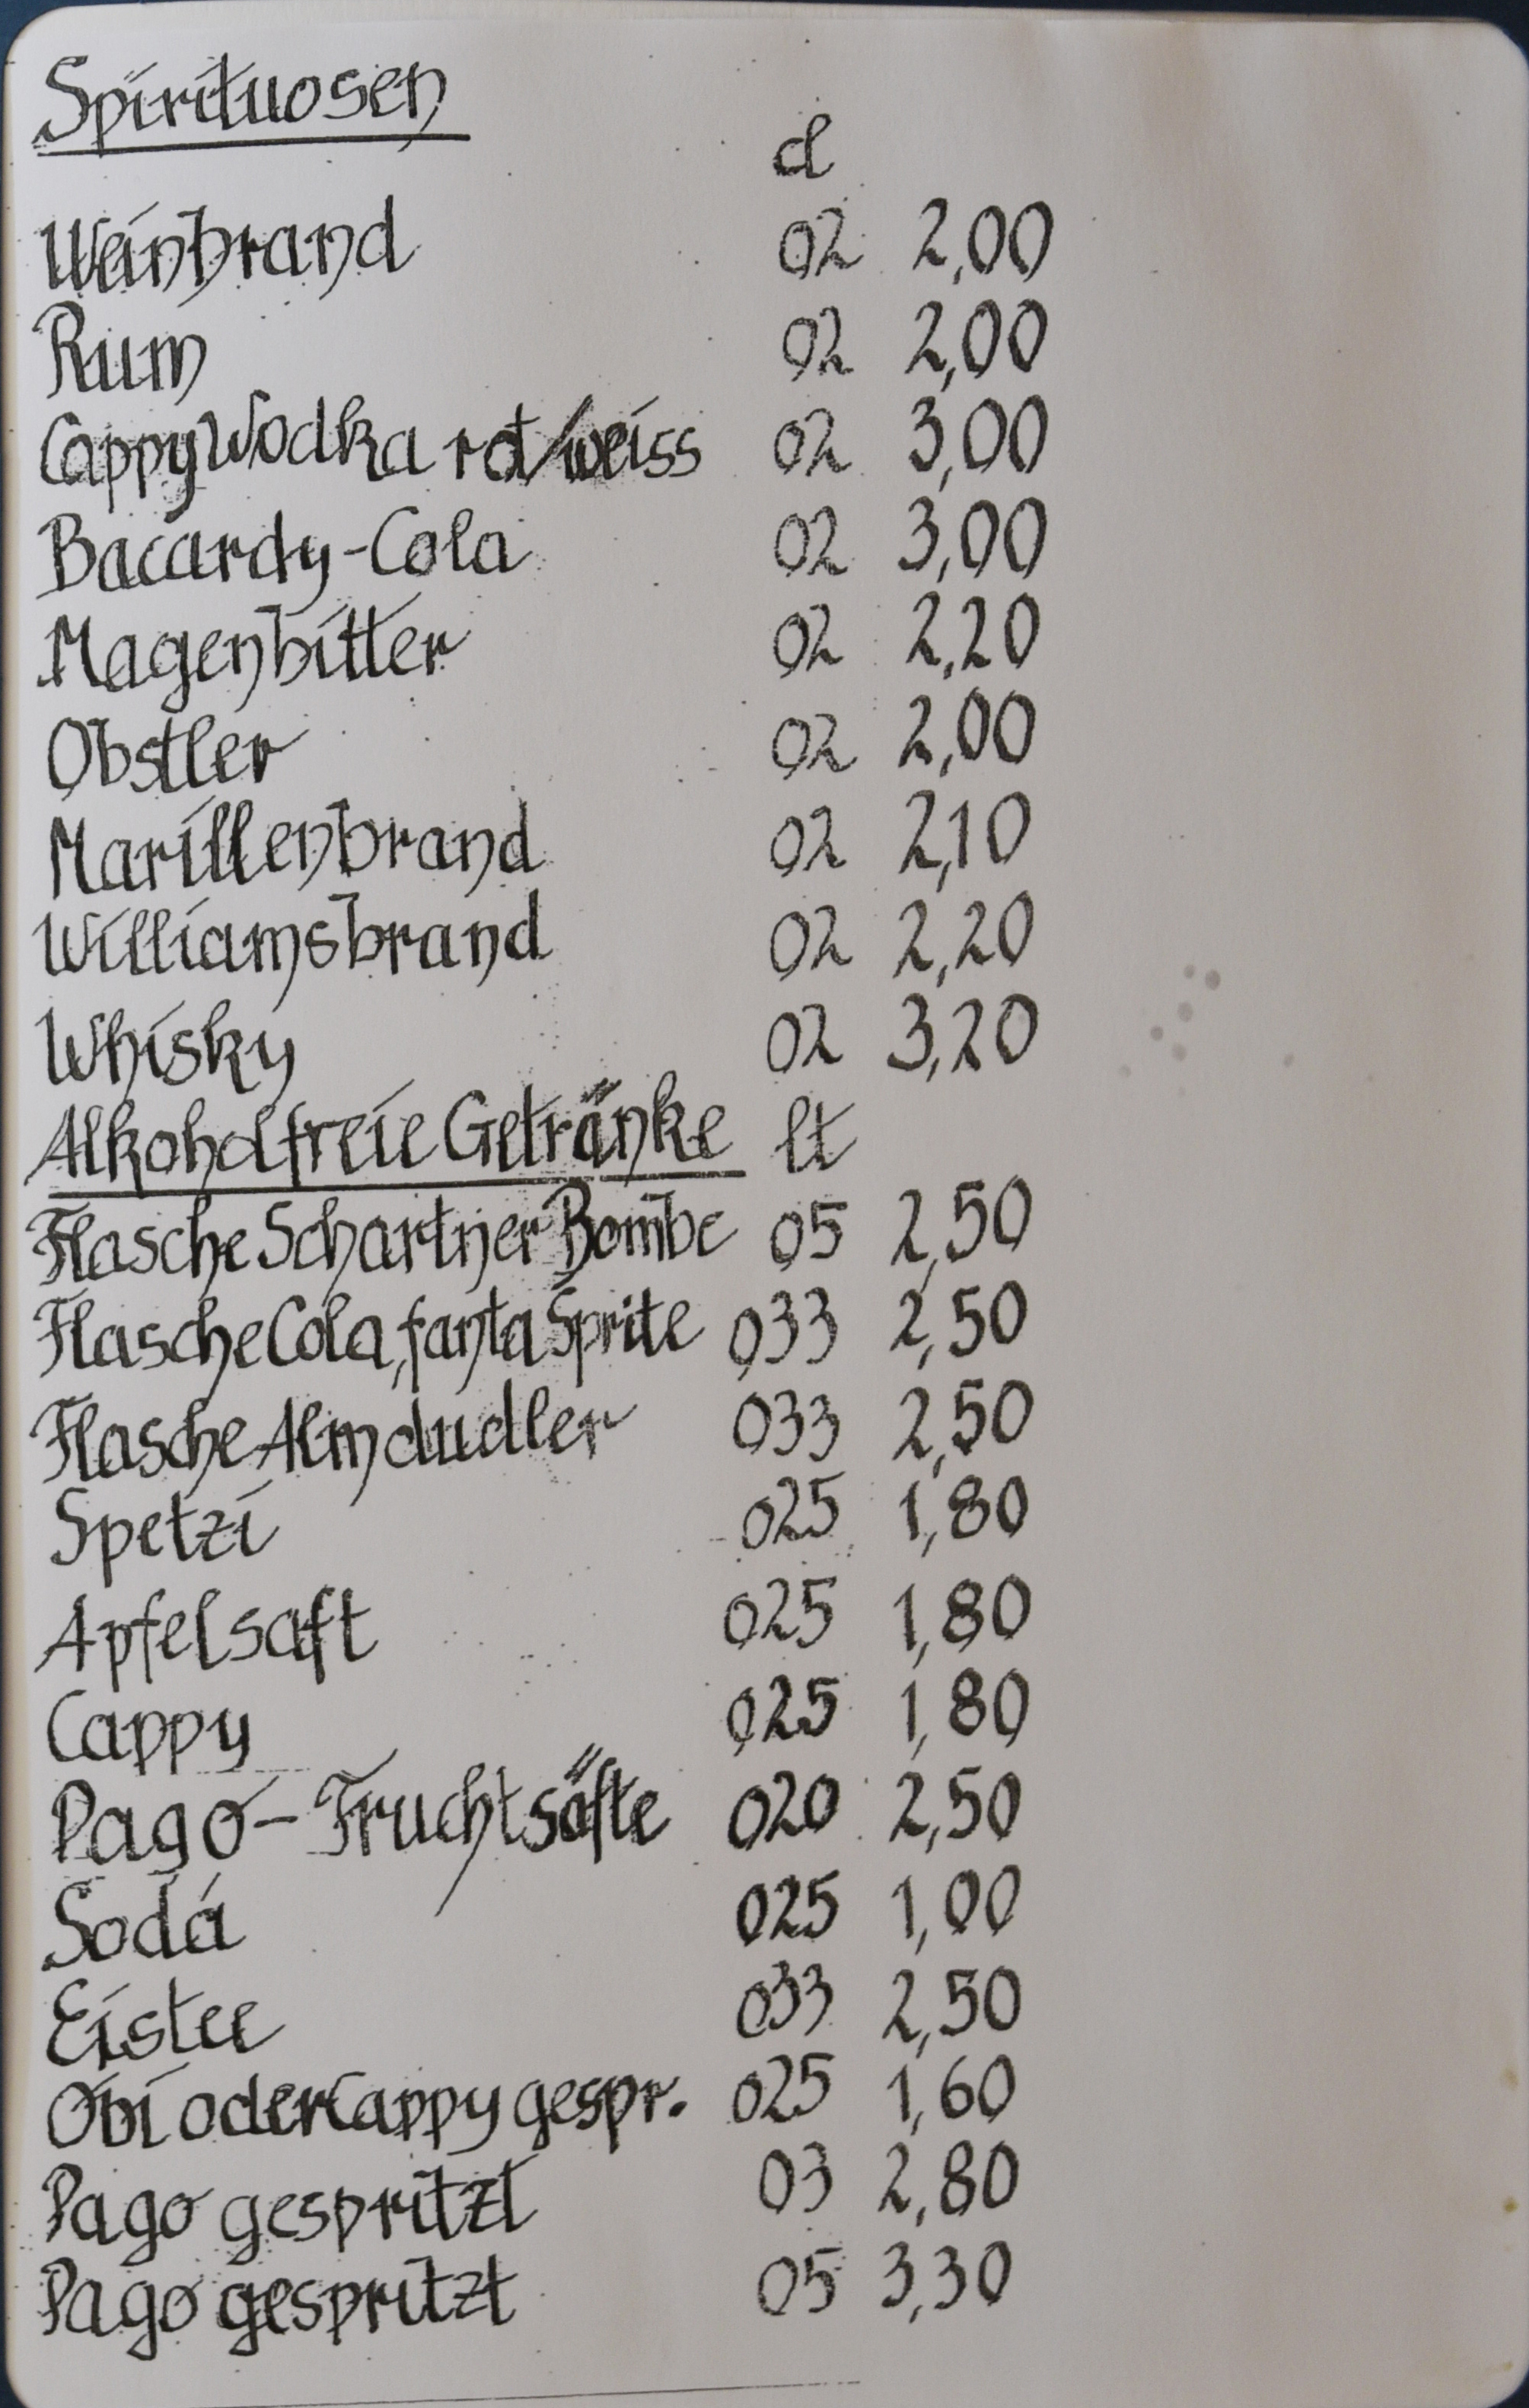 Spirituosen
cl
Weinbrand 02 2,00
Rum 02 2,00
Cappy Wodka rot/weiss 02 3,00
Bacardy-Cola 02 3,00
Magenbitter 02 2,20
Obstler 02 2,00
Marillenbrand 02 2,10
Williamsbrand 02 2,20
Whisky 02 3,20
Alkoholfreie Getränke lt
Flasche Schartner Bombe 05 2,50
Flasche Cola, fanta Sprite 033 2,50
Flasche Almdudler 033 2,50
Spetzi 025 1,80
Apfelsaft 025 1,80
Cappy 025 1,80
Pago-Fruchtsäfte 020 2,50
Soda 025 1,00
Eistee 033 2,50
Obi oder Cappy gespr. 025 1,60
Pago gespritzt 03 2,80
Pago gespritzt 05 3,30